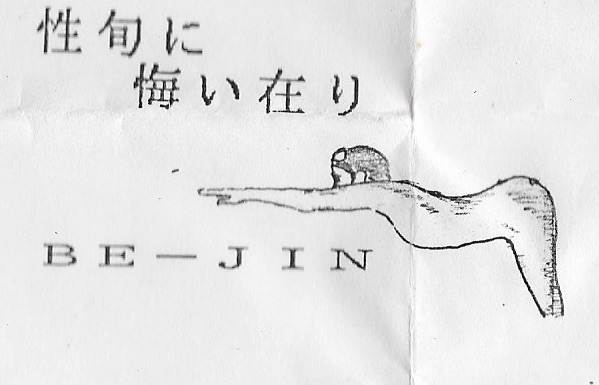 性旬に
悔い在り
BE-JIN